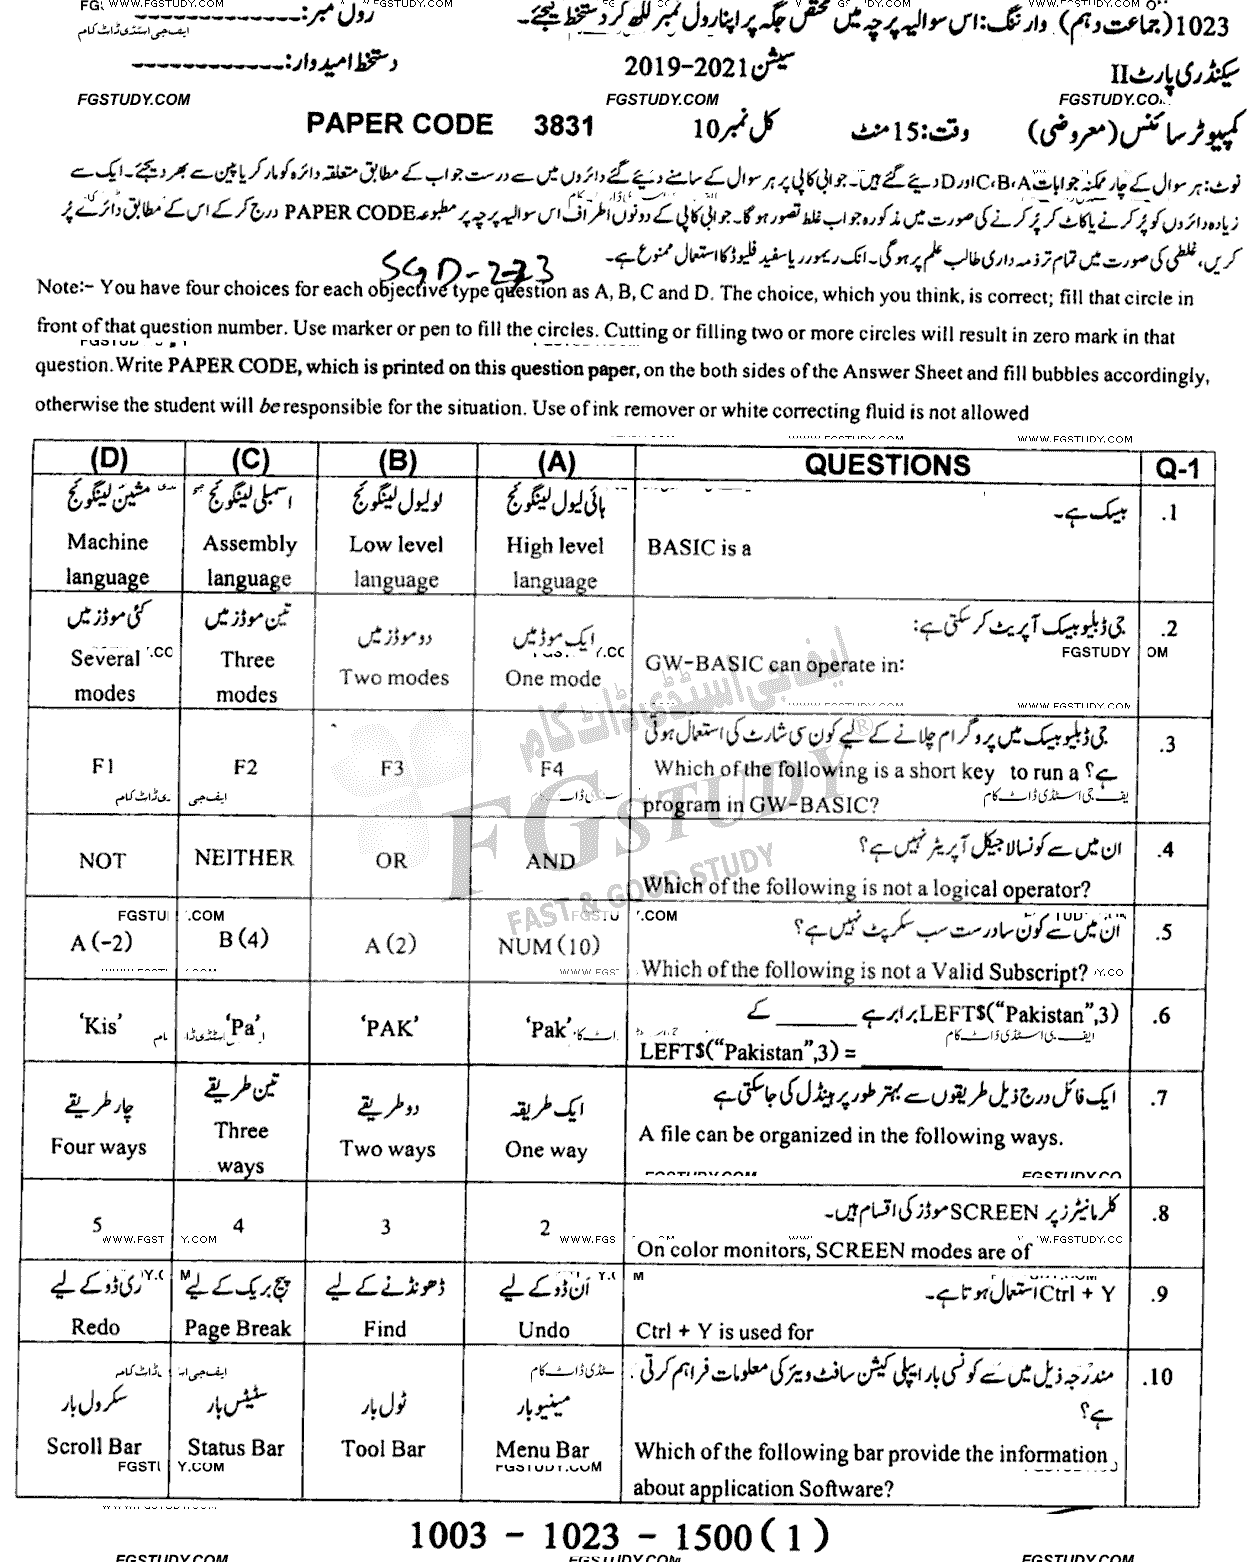 1023(جماعت دہم) وارننگ: اس سوالیہ پرچہ میں مختص جگہ پر اپنا رول نمبر لکھ کر دستخط کیجئے۔ رول نمبر: ------------
سیکنڈری پارٹ II سیشن 2021-2019 دستخط امیدوار: ------------
FGSTUDY.COM FGSTUDY.COM FGSTUDY.CO
کمپیوٹر سائنس (معروضی) وقت: 15 منٹ کل نمبر 10 PAPER CODE 3831
نوٹ: ہر سوال کے چار ممکنہ جوابات C، B، A اور D دیئے گئے ہیں۔ جوابی کاپی پر ہر سوال کے سامنے دیئے گئے دائروں میں سے درست جواب کے مطابق متعلقہ دائرہ کو مارکر یا پین سے بھر دیجئے۔ ایک سے
زیادہ دائروں کو پُر کرنے یا کاٹ کر پُر کرنے کی صورت میں مذکورہ جواب غلط تصور ہو گا۔ جوابی کاپی کے دونوں اطراف اس سوالیہ پرچہ پر مطبوعہ PAPER CODE درج کر کے اس کے مطابق دائرے پُر
کریں، غلطی کی صورت میں تمام تر ذمہ داری طالب علم پر ہو گی۔ انک ریمور یا سفید فلیوڈ کا استعمال ممنوع ہے۔
Note:- You have four choices for each objective type question as A, B, C and D. The choice, which you think, is correct; fill that circle in
front of that question number. Use marker or pen to fill the circles. Cutting or filling two or more circles will result in zero mark in that
question. Write PAPER CODE, which is printed on this question paper, on the both sides of the Answer Sheet and fill bubbles accordingly,
otherwise the student will be responsible for the situation. Use of ink remover or white correcting fluid is not allowed
WWW.FGSTUDY.COM
(D) (C) (B) (A) QUESTIONS Q-1
مشین لینگوئج اسمبلی لینگوئج لو لیول لینگوئج ہائی لیول لینگوئج بیسک ہے۔ .1
Machine Assembly Low level High level BASIC is a
language language language language
کئی موڈز میں تین موڈز میں دو موڈز میں ایک موڈ میں جی ڈبلیو بیسک آپریٹ کر سکتی ہے: .2
Several Three Two modes One mode GW-BASIC can operate in:
modes modes
جی ڈبلیو بیسک میں پروگرام چلانے کے لیے کون سی شارٹ کی استعمال ہوتی .3
F1 F2 F3 F4 Which of the following is a short key to run a ہے؟
program in GW-BASIC?
ان میں سے کونسا لاجیکل آپریٹر نہیں ہے؟ .4
NOT NEITHER OR AND Which of the following is not a logical operator?
ان میں سے کون سا درست سب سکرپٹ نہیں ہے؟ .5
A (-2) B (4) A (2) NUM (10) Which of the following is not a Valid Subscript?
LEFT$("Pakistan",3) برابر ہے ______ کے .6
'Kis' 'Pa' 'PAK' 'Pak' LEFT$("Pakistan",3) = ______
چار طریقے تین طریقے دو طریقے ایک طریقہ ایک فائل درج ذیل طریقوں سے بہتر طور پر ہینڈل کی جا سکتی ہے .7
Four ways Three ways Two ways One way A file can be organized in the following ways.
کلر مانیٹرز پر SCREEN موڈز کی اقسام ہیں۔ .8
5 4 3 2 On color monitors, SCREEN modes are of
ری ڈو کے لیے پیج بریک کے لیے ڈھونڈنے کے لیے ان ڈو کے لیے Ctrl + Y استعمال ہوتا ہے۔ .9
Redo Page Break Find Undo Ctrl + Y is used for
سکرول بار سٹیٹس بار ٹول بار مینیو بار مندرجہ ذیل میں سے کونسی بار ایپلی کیشن سافٹ ویئر کی معلومات فراہم کرتی ہے؟ .10
Scroll Bar Status Bar Tool Bar Menu Bar Which of the following bar provide the information
about application Software?
ایف جی اسٹڈی ڈاٹ کام
FGSTUDY
FAST & GOOD STUDY
1003 - 1023 - 1500 (1)
FGSTUDY.COM FGSTUDY.COM FGSTUDY.COM